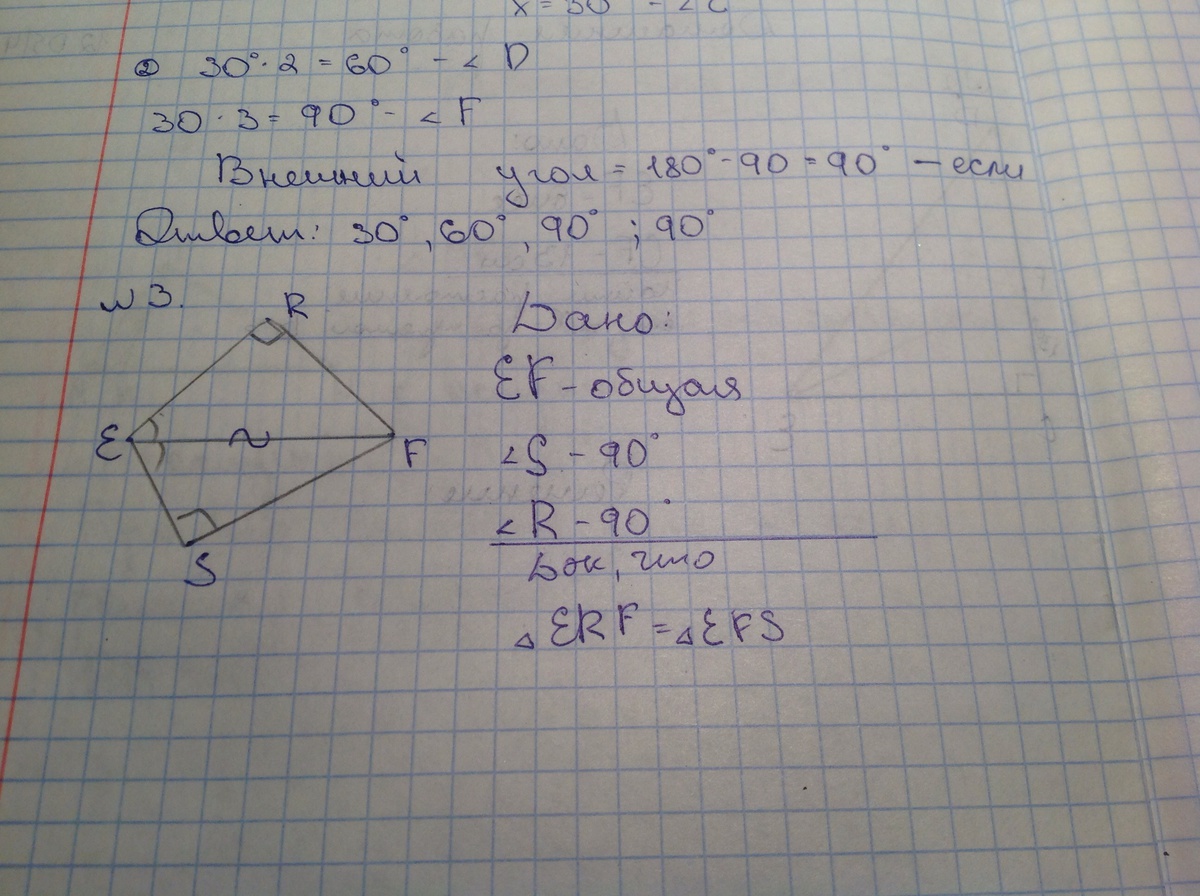 x = 30° - ∠C
② 30°·2 = 60° - ∠ D
30·3 = 90° - ∠ F
Внешний угол = 180° - 90 = 90° - если
Ответ: 30°, 60°, 90° ; 90°
№3.
R
E
F
S
Дано:
EF - общая
∠S - 90°
∠R - 90°
Док, что
△ERF = △EFS